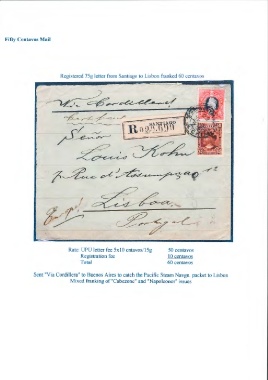 Fifty Centavos Mail
Registered 75g letter from Santiago to Lisbon franked 60 centavos
Via Cordillera
Señor
Louis Kohn
Rua d'Assumpçao
Lisboa
Portugal
Rate: UPU letter fee 5x10 cntavos/15g 50 centavos
Registration fee 10 centavos
Total 60 centavos
Sent "Via Cordillera" to Buenos Aires to catch the Pacific Steam Navgn packet to Lisbon
Mixed franking of "Cabezone" and "Napoleones" issues